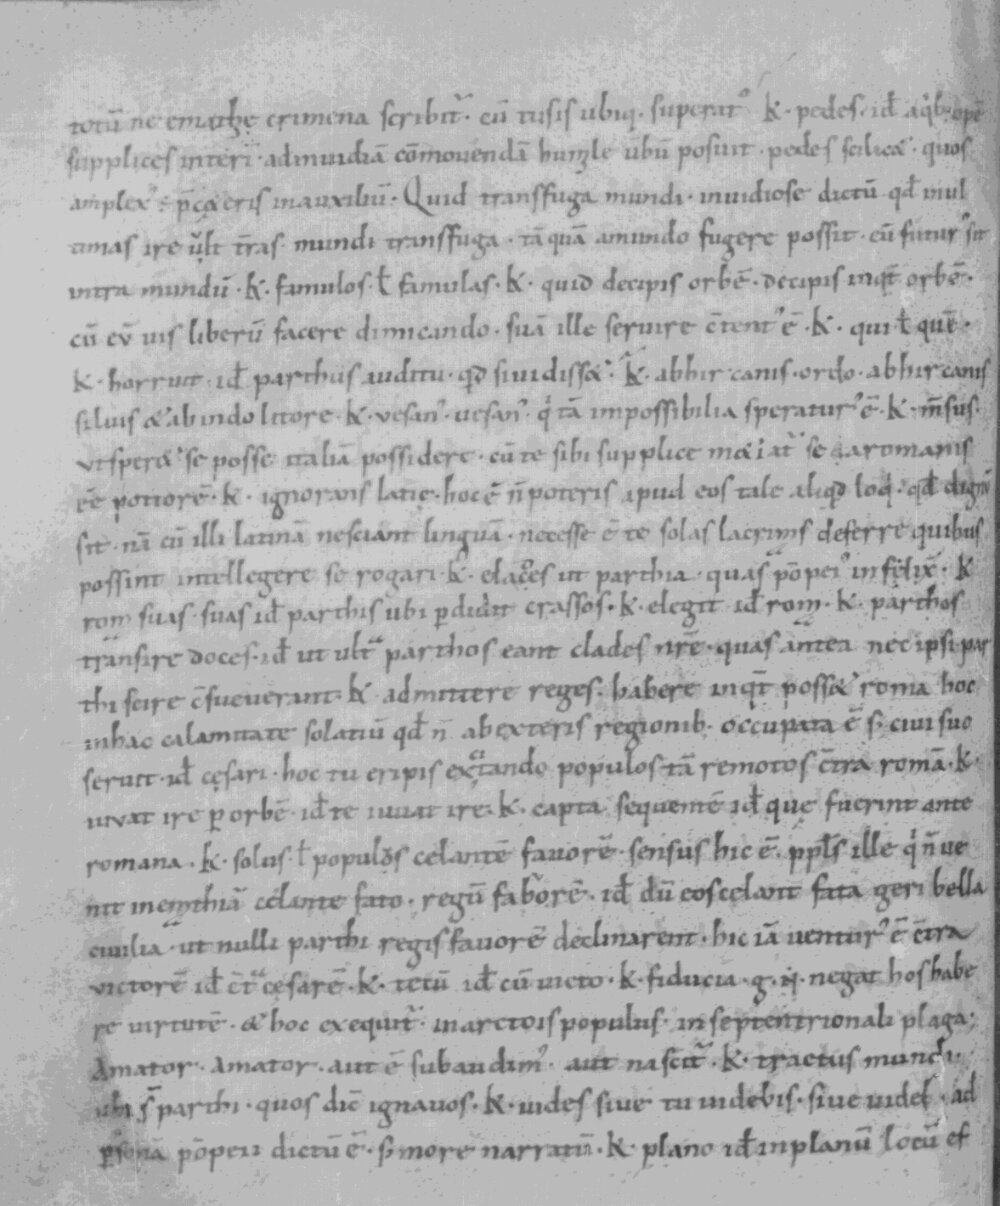 totū ne emathę crimena scribit᷑. cū tusis ubiq. superat᾿ K. pedes. id aqb. opē
supplices interī. adinuidiā cōmouendā humłe ubū posuit. pedes scilicet. quos
amplex᾿. p̄ceteris inauxiliū. Quid transfuga mundi. inuidiose dictū. qđ inul
timas ire ułt t̄ras. mundi transfuga. tā quā amundo fugere possit. cū futur᾿ sit
intra mundū. K. famulos. ł famulas. K. quid decipis orbē. decipis inqt̄ orbē.
cū eū uis liberū facere dimicando. suā ille seruire c̄tent᾿ ē. K. qui ł quē.
K. horruit. id parthus auditu. qđ siuidisset. K. abhir canis. ordo. abhir canis
siluis & abindo litore. K. vesan᾿. uesan᾿. q tā impossibilia speratur᾿ ē. K. m̄sus.
ut speret se posse italiā possidere. cū te sibi supplice metiat᷑ se aromanis
eē potiorē. K. ignorans latię. hoc ē n̄ poteris apud eos tale aliqđ loq. qđ dignū
sit. nā cū illi latinā nesciant linguā. necesse ē te solas lacrimas deferre quibus
possint intellegere se rogari. K. elades ut parthia. quas pōpei᾿ infelix. K
rom suas. suas id parthis ubi pdidit crassos. K. elegit id rom. K. parthos
transire doces. id ut ult parthos eant clades nrē. quas antea nec ipsi par
thi scire c̄sueuerant. K. admittere reges. habere inqt̄ posset roma hoc
inhac calamitate solatiū qđ n̄ abexteris regionib. occupata ē s. ciui suo
seruit. id cęsari. hoc tu eripis excitando populos tā remotos c̄tra romā. K.
iuvat ire p orbē. id te iuuat ire. K. capta sequentē id que fuerint ante
romana. K. solus. ł populos celantē fauorē. sensus hic ē. ppłs ille q n̄ ue
nit inemthiā celante fato. regū faborē. id dū eoscelant fata geri bella
ciuilia. ut nulli parthi regis fauorē declinarent. hic iā uentur᾿ ē c̄tra
victorē id c̄t cęsarē. K. tetū id cū uicto. K. fiducia. g. ii. negat hos habe
re uirtutē. & hoc exequit᷑. inarctois populus. in septentrionali plaga;
Amator. Amator. aut ē subaudim᾿. aut nascit᷑. K. tractus mundi.
ubi s̄ parthi. quos dic̄ ignauos. K. uides siue tu uidebis. siue uideł. ad
psonā pōpeii dictū ē. s more narratiū. K. plano id inplanū locū ef